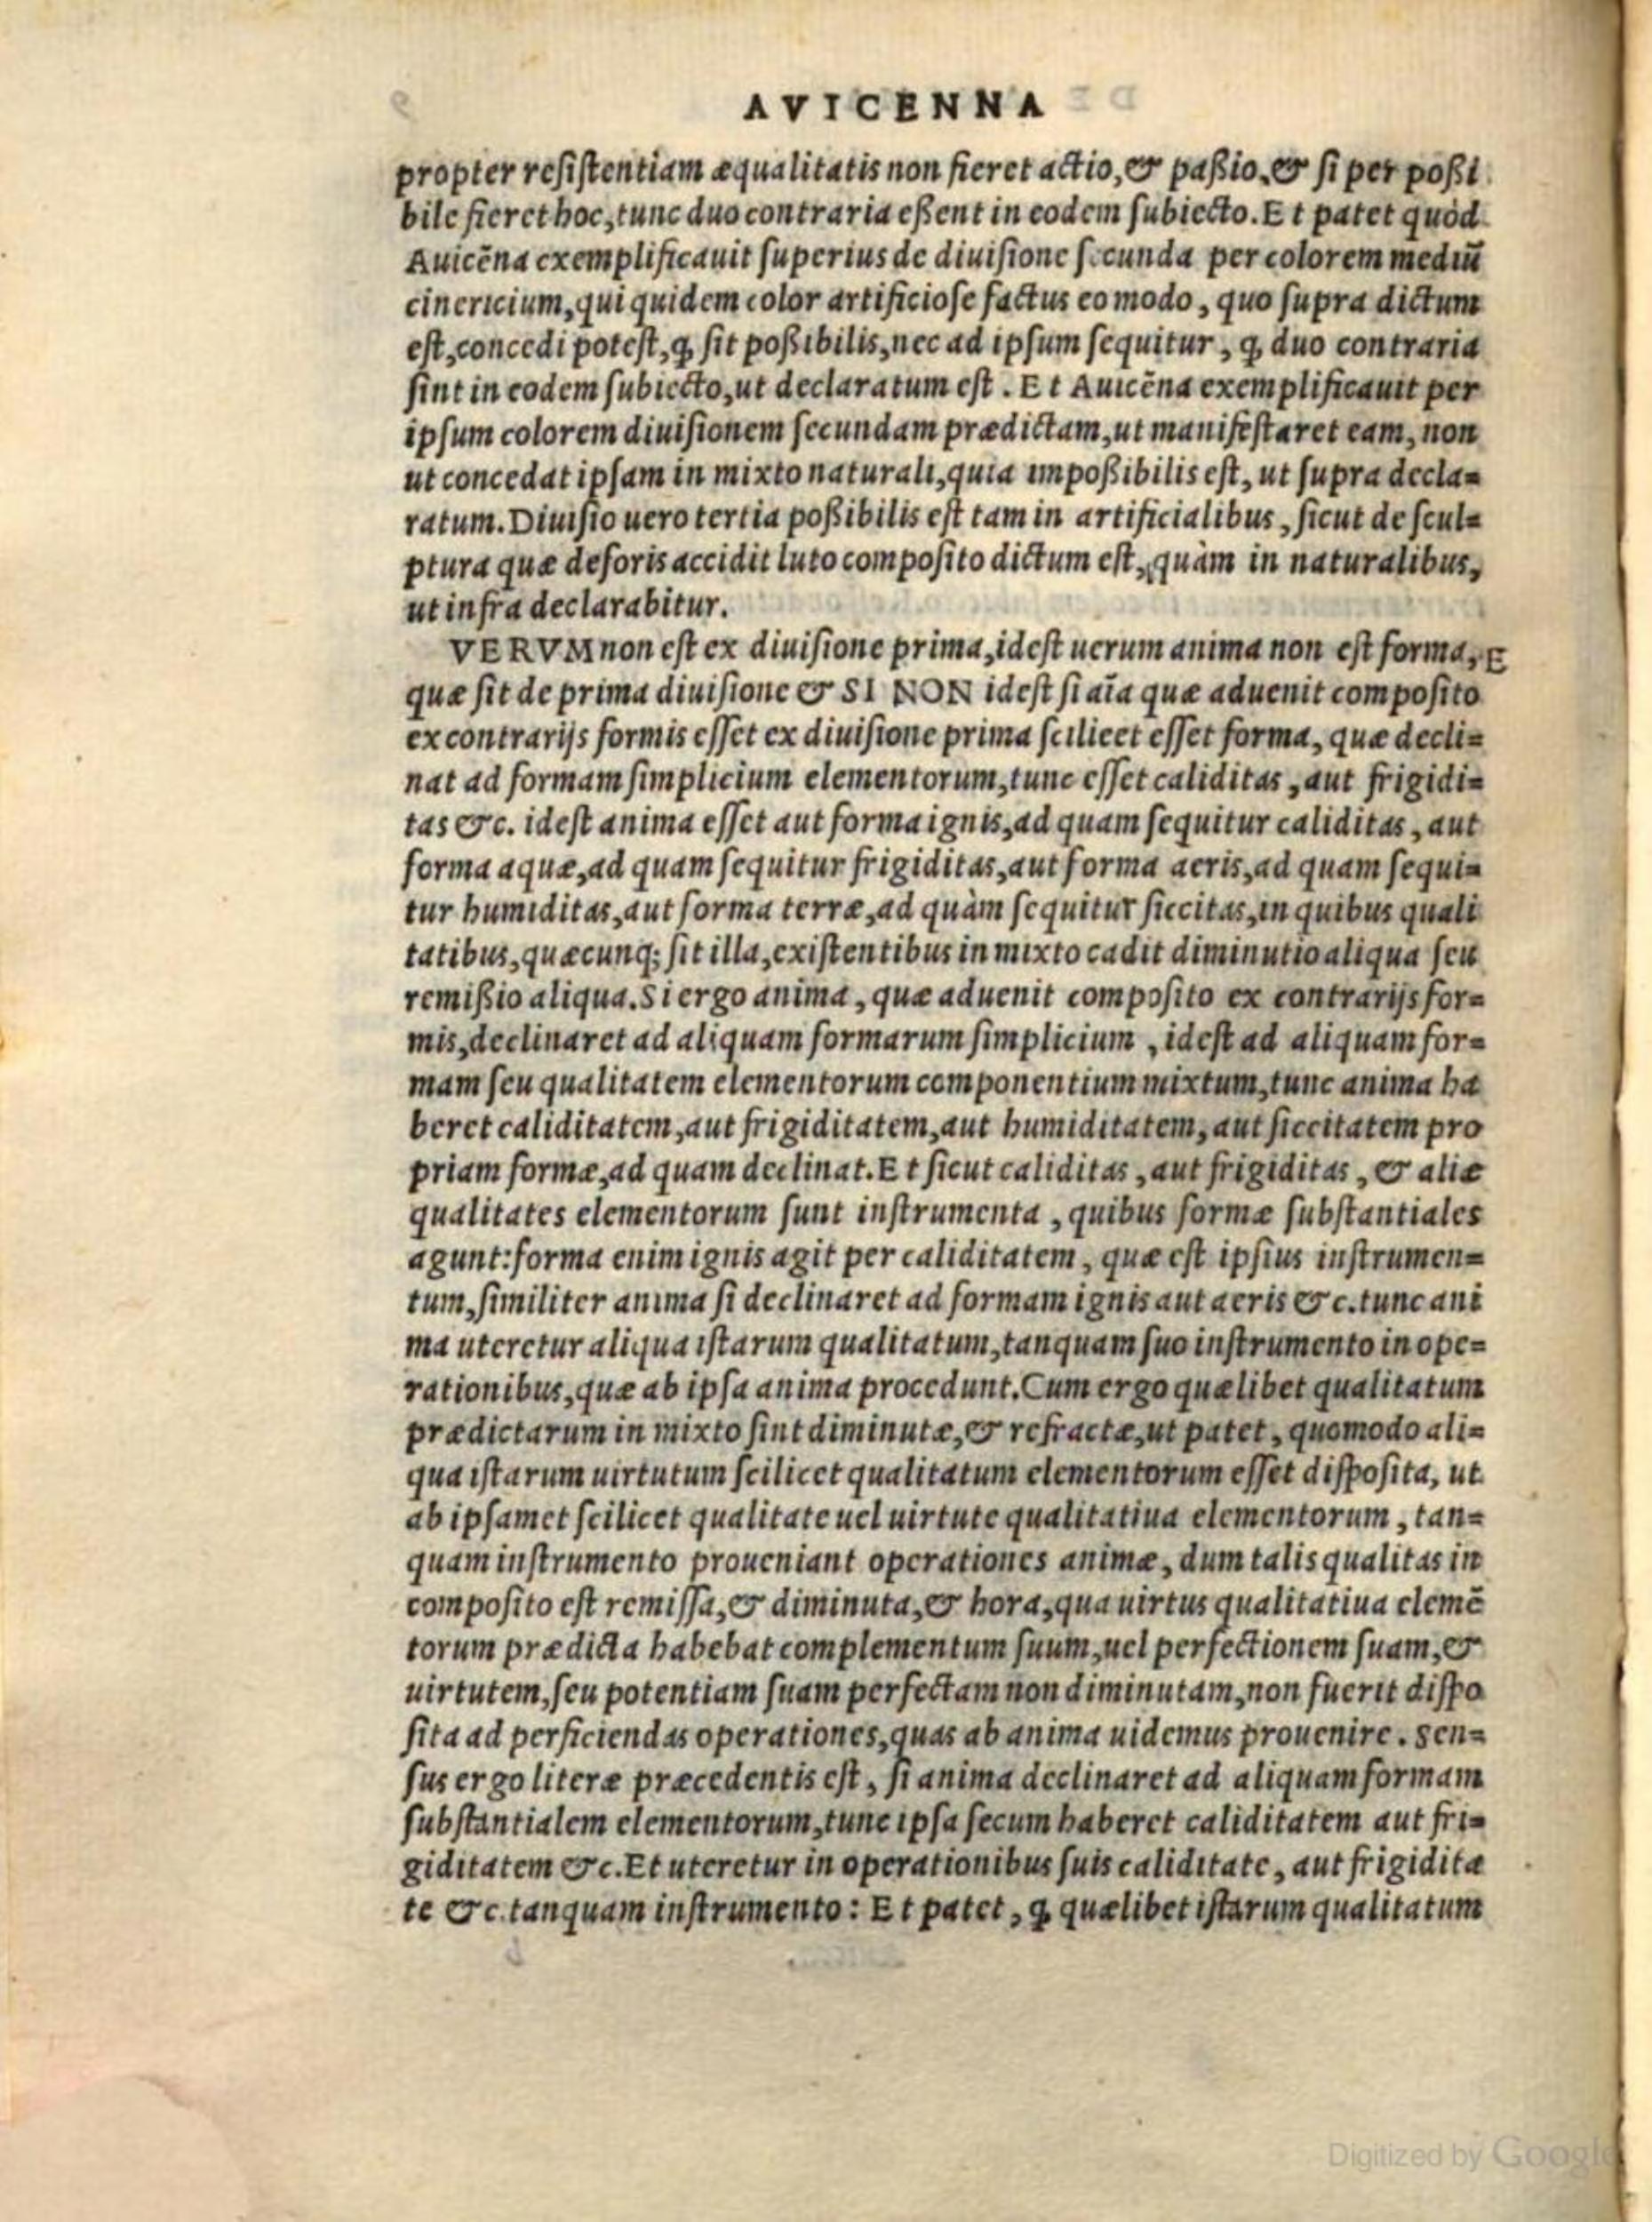 AVICENNA
propter resistentiam æqualitatis non fieret actio, & paßio, & si per poßi
bile fieret hoc, tunc duo contraria eßent in eodem subiecto. Et patet quòd
Auicēna exemplificauit superius de diuisione secunda per colorem mediū
cinericium, qui quidem color artificiose factus eo modo, quo supra dictum
est, concedi potest, ꝙ sit poßibilis, nec ad ipsum sequitur, ꝙ duo contraria
sint in eodem subiecto, ut declaratum est. Et Auicēna exemplificauit per
ipsum colorem diuisionem secundam prædictam, ut manifestaret eam, non
ut concedat ipsam in mixto naturali, quia impoßibilis est, ut supra decla=
ratum. Diuisio uero tertia poßibilis est tam in artificialibus, sicut de scul=
ptura quæ deforis accidit luto composito dictum est, quàm in naturalibus,
ut infra declarabitur.
VERVM non est ex diuisione prima, idest uerum anima non est forma, E
quæ sit de prima diuisione & SI NON idest si aīa quæ aduenit composito
ex contrarijs formis esset ex diuisione prima scilicet esset forma, quæ decli=
nat ad formam simplicium elementorum, tunc esset caliditas, aut frigidi=
tas &c. idest anima esset aut forma ignis, ad quam sequitur caliditas, aut
forma aquæ, ad quam sequitur frigiditas, aut forma aeris, ad quam sequi=
tur humiditas, aut forma terræ, ad quàm sequitur siccitas, in quibus quali
tatibus, quæcunq; sit illa, existentibus in mixto cadit diminutio aliqua seu
remißio aliqua. Si ergo anima, quæ aduenit composito ex contrarijs for=
mis, declinaret ad aliquam formarum simplicium, idest ad aliquam for=
mam seu qualitatem elementorum componentium mixtum, tunc anima ha
beret caliditatem, aut frigiditatem, aut humiditatem, aut siccitatem pro
priam formæ, ad quam declinat. Et sicut caliditas, aut frigiditas, & aliæ
qualitates elementorum sunt instrumenta, quibus formæ substantiales
agunt: forma enim ignis agit per caliditatem, quæ est ipsius instrumen=
tum, similiter anima si declinaret ad formam ignis aut aeris &c. tunc ani
ma uteretur aliqua istarum qualitatum, tanquam suo instrumento in ope=
rationibus, quæ ab ipsa anima procedunt. Cum ergo quælibet qualitatum
prædictarum in mixto sint diminutæ, & refractæ, ut patet, quomodo ali=
qua istarum uirtutum scilicet qualitatum elementorum esset disposita, ut
ab ipsamet scilicet qualitate uel uirtute qualitatiua elementorum, tan=
quam instrumento proueniant operationes animæ, dum talis qualitas in
composito est remissa, & diminuta, & hora, qua uirtus qualitatiua elemē
torum prædicta habebat complementum suum, uel perfectionem suam, &
uirtutem, seu potentiam suam perfectam non diminutam, non fuerit dispo
sita ad perficiendas operationes, quas ab anima uidemus prouenire. Sen=
sus ergo literæ præcedentis est, si anima declinaret ad aliquam formam
substantialem elementorum, tunc ipsa secum haberet caliditatem aut fri=
giditatem &c. Et uteretur in operationibus suis caliditate, aut frigidita
te &c. tanquam instrumento: Et patet, ꝙ quælibet istarum qualitatum
Digitized by Google